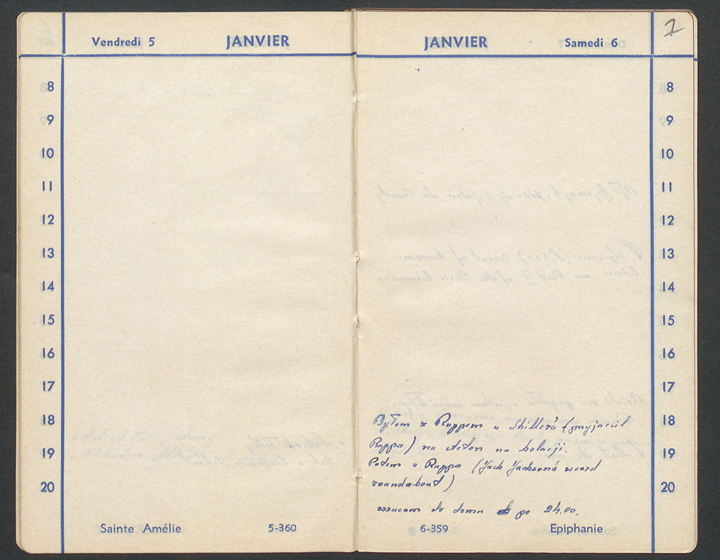 Vendredi 5 JANVIER
8
9
10
11
12
13
14
15
16
17
18
19
20
Sainte Amélie 5-360
JANVIER Samedi 6
1
8
9
10
11
12
13
14
15
16
17
18
19
20
Byłem z Ruppem u
Ruppa) na na kolacji.
Potem u Ruppa (Jack Jacksona record
roundabout)
wracam do domu po 24.00.
6-359 Epiphanie